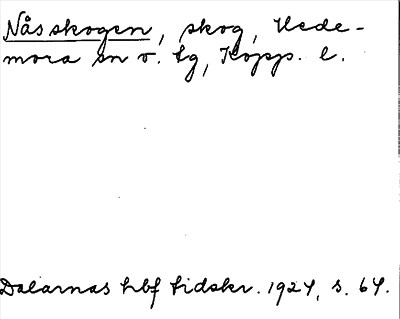 Nåsskogen, skog, Hede-
mora sn o. tg, Kopp. l.
Dalarnas hbf tidskr. 1924, s. 64.